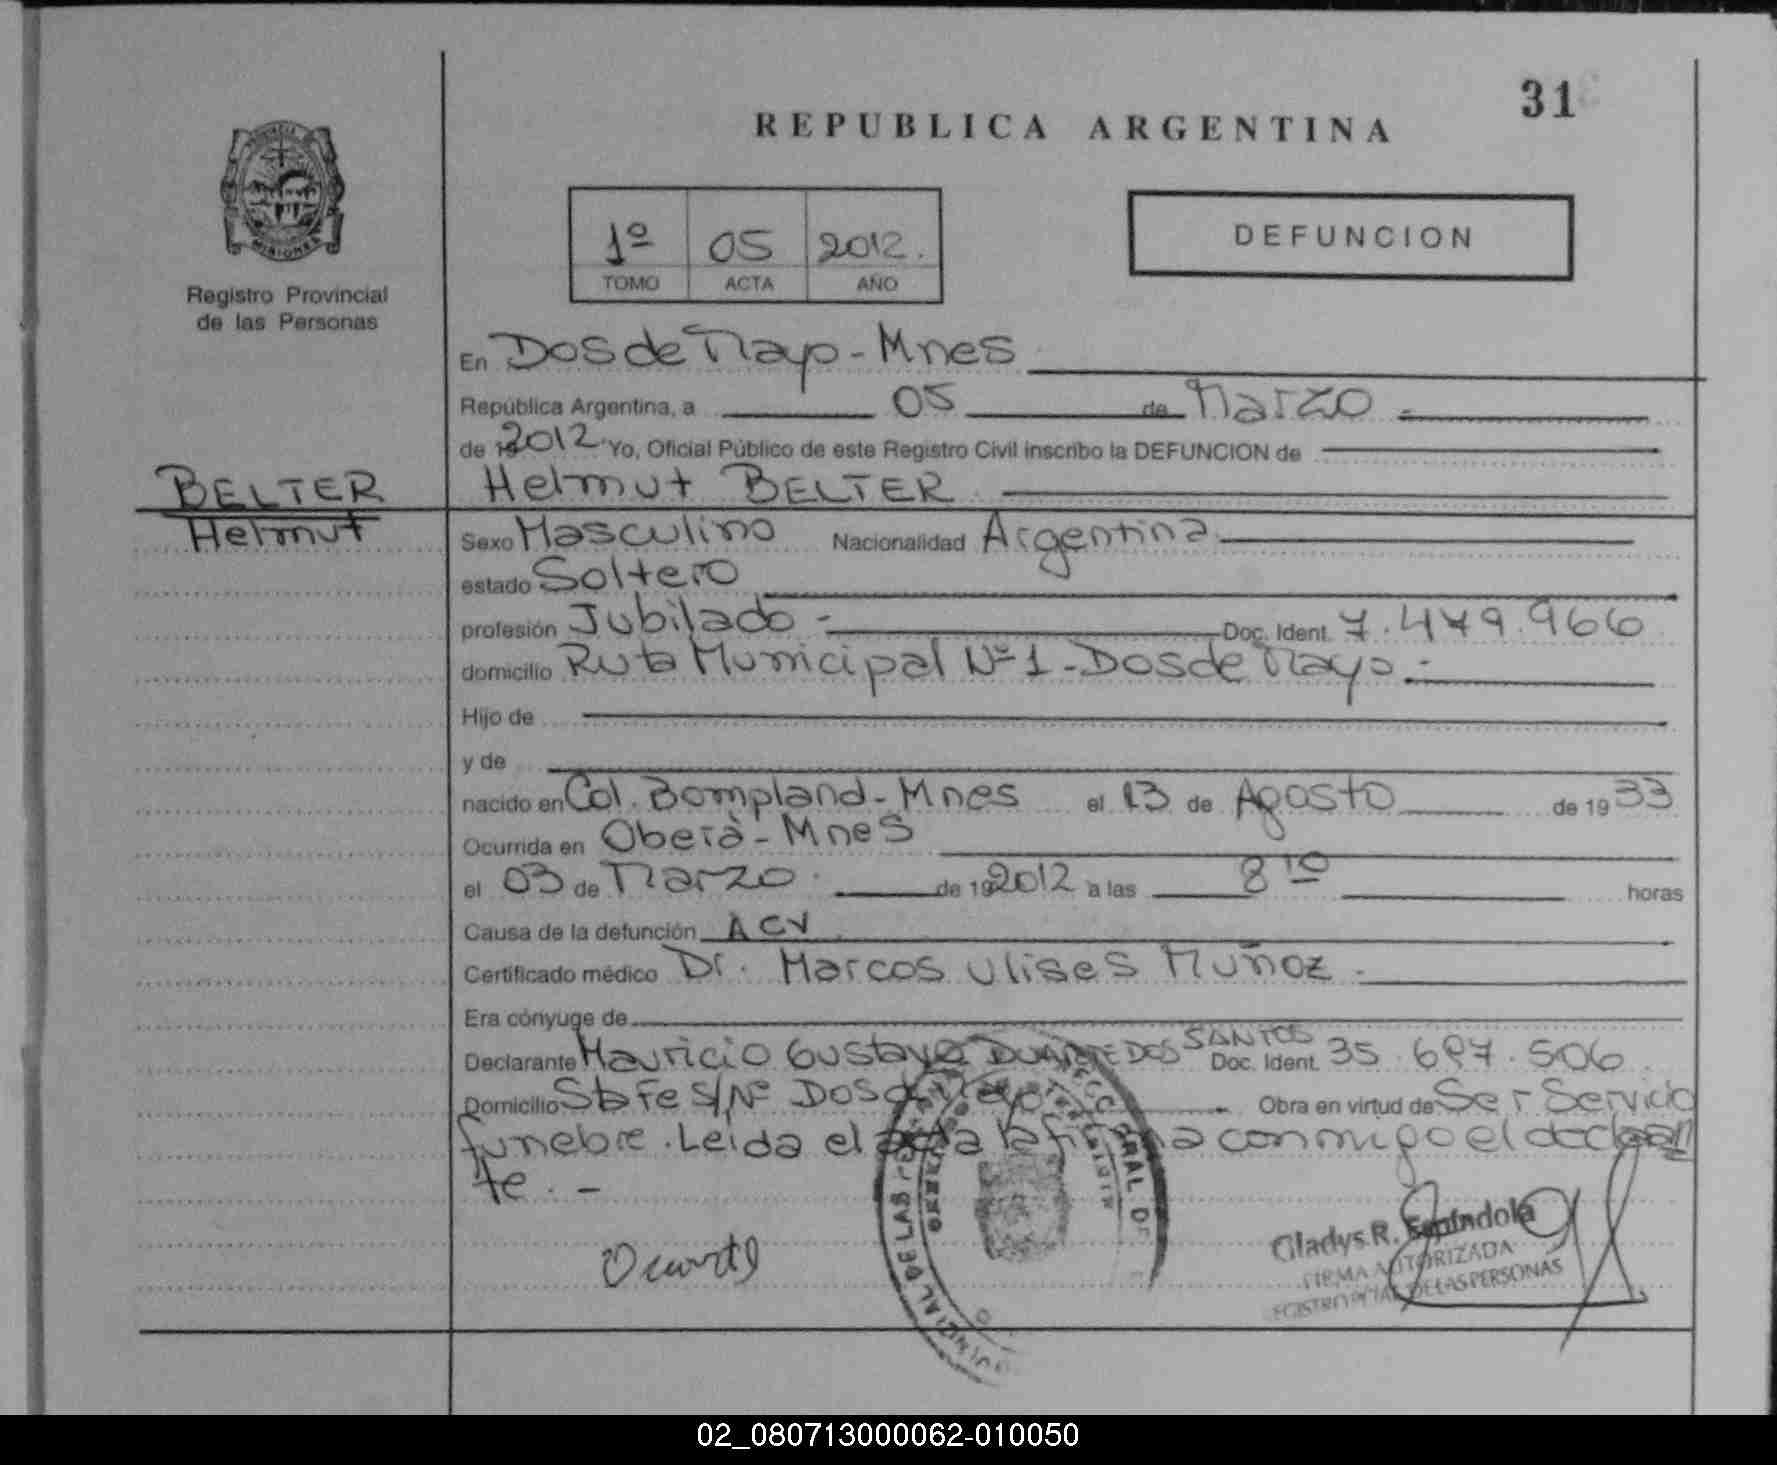 31
REPUBLICA ARGENTINA
1º 05 2012.
TOMO ACTA AÑO
DEFUNCION
MISIONES
Registro Provincial
de las Personas
En Dos de Mayo - Mnes
República Argentina, a 05 de Marzo
de 19 2012 Yo, Oficial Público de este Registro Civil inscribo la DEFUNCION de
BELTER Helmut BELTER
Helmut Sexo Masculino Nacionalidad Argentina
estado Soltero
profesión Jubilado - Doc. Ident. 7.479.966
domicilio Ruta Municipal Nº 1 - Dos de Mayo -
Hijo de
y de
nacido en Col. Bompland - Mnes el 13 de Agosto de 19 33
Ocurrida en Oberá - Mnes
el 03 de Marzo de 19 2012 a las 8 10 horas
Causa de la defunción ACV
Certificado médico Dr. Marcos Ulises Muñoz -
Era cónyuge de
Declarante Mauricio Gustavo DUARTE DOS SANTOS Doc. Ident. 35.697.506
Domicilio Sta Fe S/Nº Dos de Mayo Obra en virtud de Ser Servicio
funebre. Leida el acta la firma conmigo el declaran
te. -
Duarte
Gladys R. Espíndola
FIRMA AUTORIZADA
REGISTRO PCIAL. DE LAS PERSONAS
02_080713000062-010050